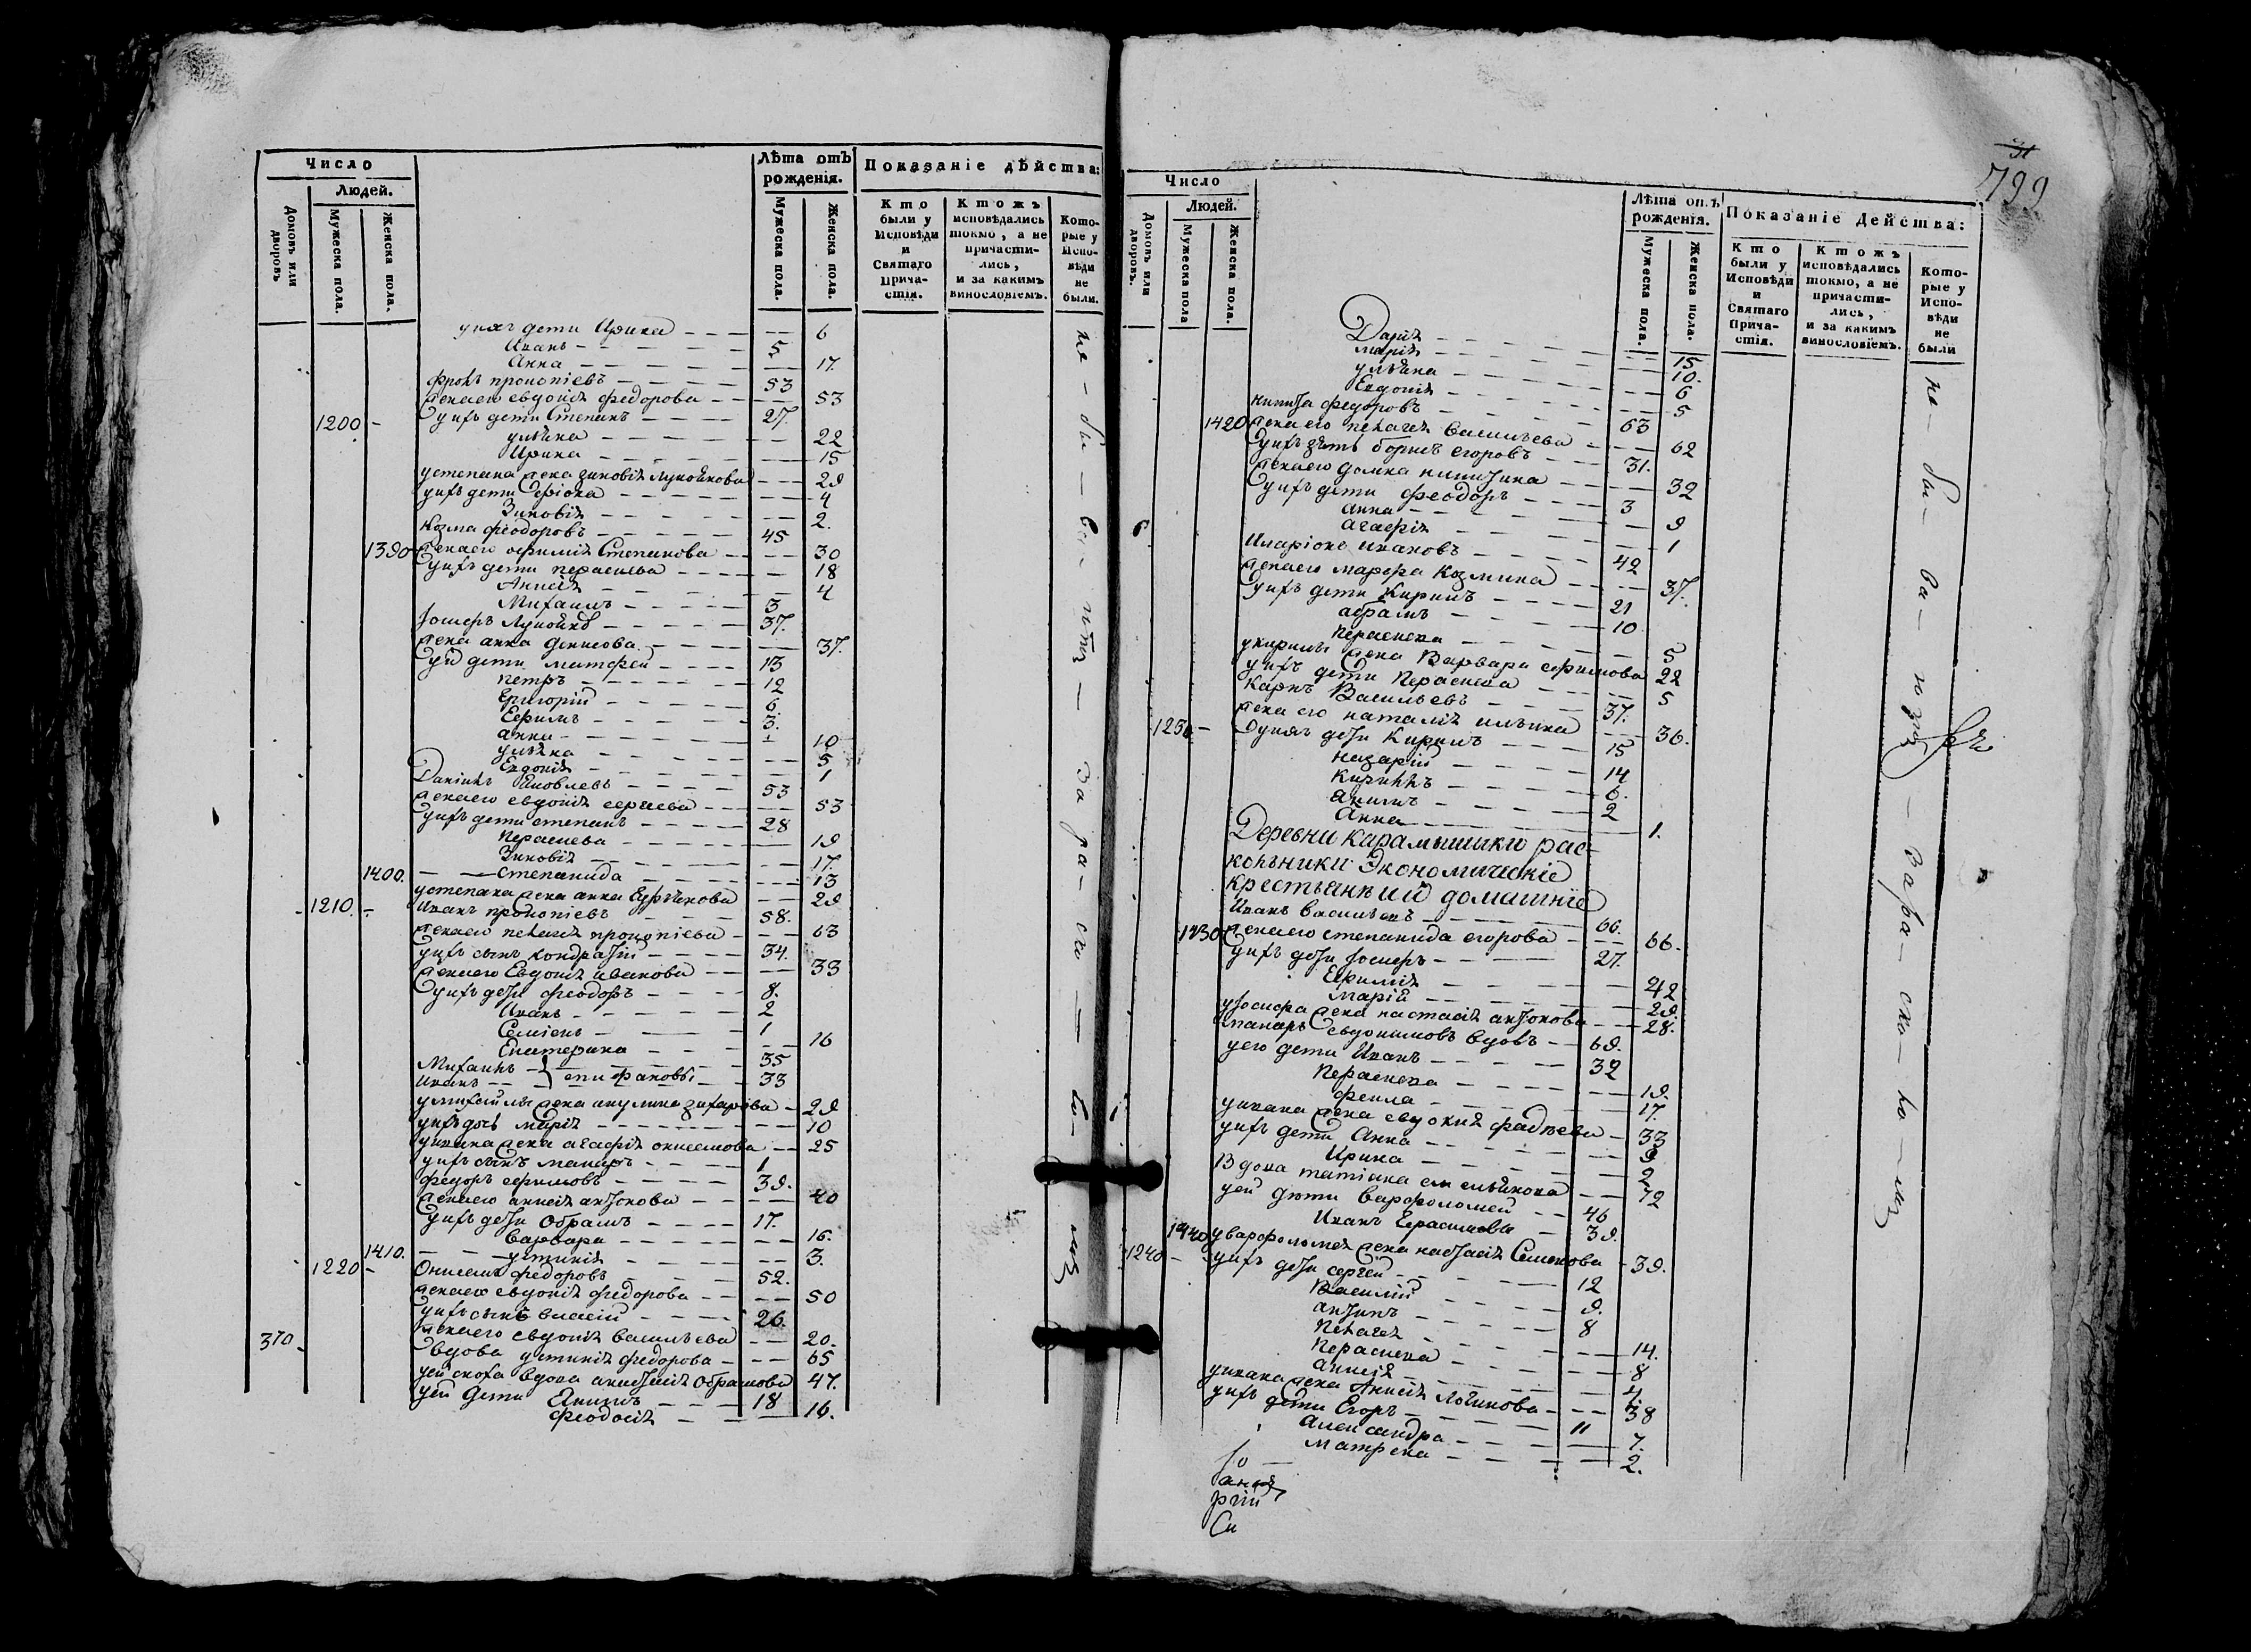 Число
Людей.
Домовъ или дворовъ
Мужеска пола.
Женска пола.
Лѣта отъ рожденія.
Мужеска пола.
Женска пола.
Показаніе дѣйства:
Кто были у Исповѣди и Святаго Прича-стія.
Ктожъ исповѣдались токмо, а не причасти-лись, и за какимъ винословіемъ.
Кото-рые у Испо-вѣди не были.
унихъ дети Ирина 6
Иванъ 5
Анна 17.
фролъ прокопіевъ 53
жена его евдокія федорова 53
1200 унихъ дети Степанъ 27.
ульяна 22
Ирина 15
устепана жена зиновія лукоянова 29
унихъ дети 4
Зиновія 2.
козма феодоровъ 45
1390 жена его офимія Степанова 30
унихъ дети перасковья 18
Анисія 4
Михаилъ 3
Іосифъ Лукоянов 37.
жена анна денисова 37.
у них дети матфей 13
петръ 12
Григорій 6.
Ефимъ 3.
анна 10
ульяна 5
Евдокія 1
Даніилъ Яковлевъ 53
жена его евдокія сергиева 53
унихъ дети степанъ 28
Парасковья 19
Зиновія 17.
1400. степанида 13
устепана жена анна 29
1210. Иванъ прокопіевъ 58.
жена его пелагея прокопіева 63
унихъ сынъ кондратій 34.
жена его Евдокія иванова 33
унихъ дети феодоръ 8.
Иванъ 2
Семіонъ 1
Екатерина 16
Михаилъ 35
Иванъ епифановы 33
умихайлы жена акулина захарова 29
унихъ дочь марія 10
уивана жена агафія онисимова 25
унихъ сынъ макаръ 1
федоръ ефимовъ 39.
жена его анисія антонова 40
унихъ дети Обрамъ 17.
варвара 16.
1410. устинія 3.
1220 Онисимъ федоровъ 52.
жена его евдокія федорова 50
унихъ сынъ власій 26.
жена его евдокія васильева 20.
370 вдова устинія федорова 65
уей сноха вдова анастасія Обрамова 47.
уей дети Якимъ 18
феодосія 16.
не - бы - ва - ютъ - за ра- ско - ло - мъ
799
Число
Людей.
Домовъ или дворовъ.
Мужеска пола
Женска пола.
Лѣта отъ рожденія.
Мужеска пола.
Женска пола.
Показаніе действа:
Кто были у Исповѣди и Святаго Прича-стія.
Ктожъ исповѣдались токмо, а не причасти-лись, и за какимъ винословіемъ.
Кото-рые у Испо-вѣди не были
Дарія 15
марія 10.
ульяна 6
Евдокія 5
никита федоровъ 63
1420 жена его пелагея васильева 62
унихъ зять борисъ егоровъ 31.
жена его домна никитина 32
унихъ дети феодоръ 3
анна 9
агафія 1
Иларіонъ ивановъ 42
жена его марфа козмина 37.
унихъ дети Кирилъ 21
абрамъ 10
Перасковья 5
укирилы жена Варвара ефимова 22
унихъ дети Перасковья 5
Карпъ Васильевъ 37.
жена его наталія ильина 36.
1230 унихъ дети Кирилъ 15
назарій 14
Кирилъ 6.
акимъ 2
Анна 1.
Деревни Карамышики рас-
кольники Экономическіе
крестьянѣ и ий домашніе
Иванъ васильевъ 66.
1430 жена его степанида егорова 66.
унихъ дети Іосифъ 27.
Ефимія 42
Марія 29.
уІосифа жена настасія антонова 28.
макаръ евдокимовъ вдовъ 69.
уего дети Иванъ 32
Перасковья 19.
фекла 17.
уивана жена евдокія фадѣева 33
унихъ дети Анна 9
Ирина 2
Вдова татіана емельянова 72
уей дети варфоломей 46
Иванъ Герасимовы 39.
1440 уварфоломея жена настасія Семенова 39.
1240 унихъ дети сергей 12
Василій 9.
антипъ 8
Пелагея 14.
Парасковья 8
анисія 4.
уивана жена Анисія Логинова 38
унихъ дети Егоръ 11
Александра 7.
матрена 2.
не - бы - ва - ютъ - за ра - ско - ло - мъ